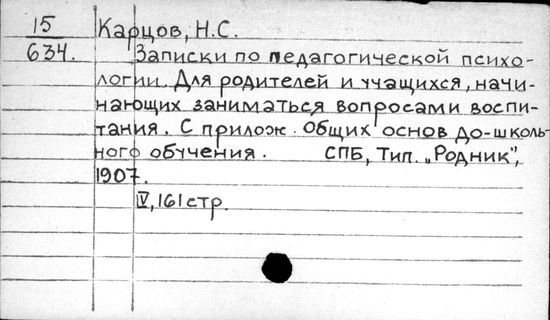 15 Карцов, Н.С.
634. Записки по педагогической психо-
логии. Для родителей и учащихся, начи-
нающих заниматься вопросами воспи-
тания. С прилож. общих основ до-школь-
ного обучения. СПБ, Тип. „Родник",
1907.
IV, 161 стр.